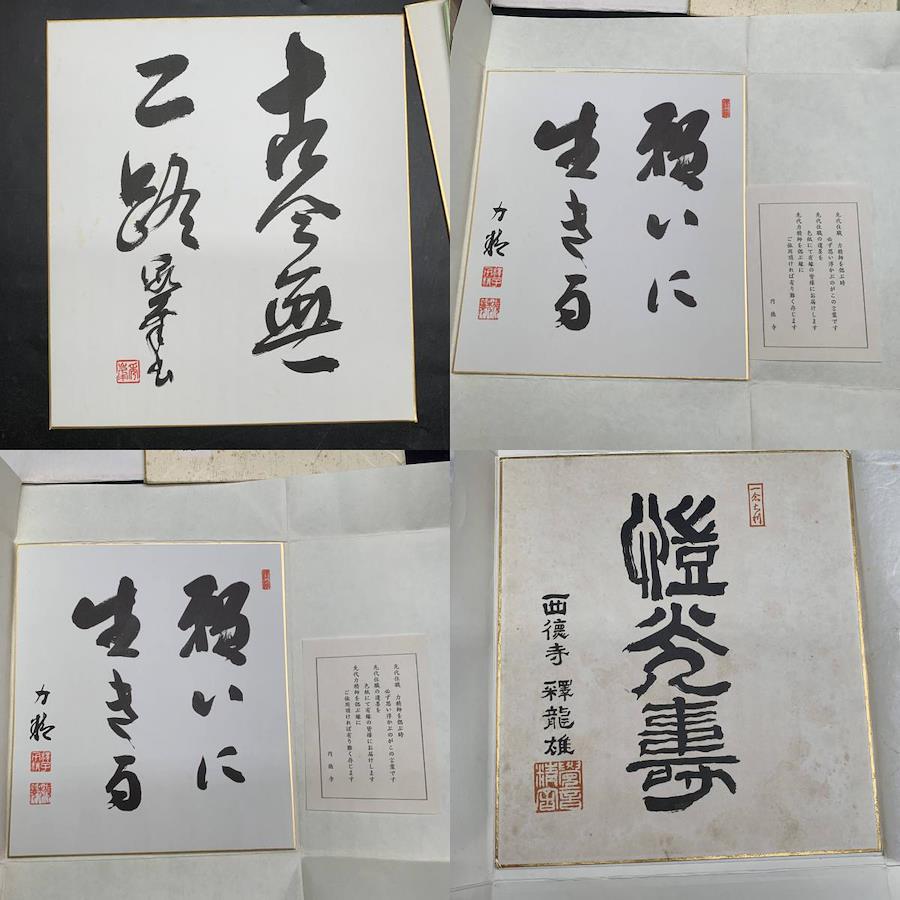 古今無
二路
願いに
生きる
力精
先代住職 力精師を偲ぶ時
必ず思い浮かぶのがこの言葉です
先代住職の遺墨を
色紙にて有縁の皆様にお届けします
先代力精師を偲ぶ縁に
ご依用頂ければ有り難く存じます
円徳寺
願いに
生きる
力精
先代住職 力精師を偲ぶ時
必ず思い浮かぶのがこの言葉です
先代住職の遺墨を
色紙にて有縁の皆様にお届けします
先代力精師を偲ぶ縁に
ご依用頂ければ有り難く存じます
円徳寺
光寿
西德寺 釋龍雄